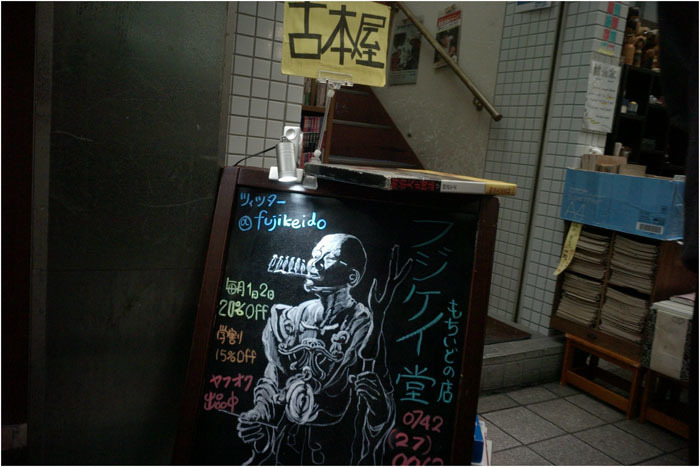 古本屋
ツィッター
@fujikeido
毎月1日2日
20%Off
学割
15%Off
ヤフオク
出品中
フジケイ堂
もちいどの店
0742
(27)